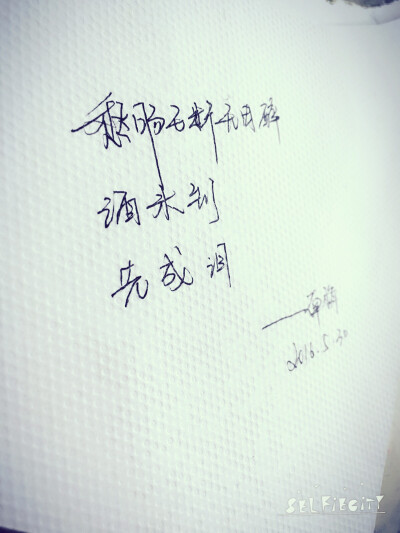 愁肠已断无由醉
酒未到
先成泪
2016.5.30
SELFIECITY